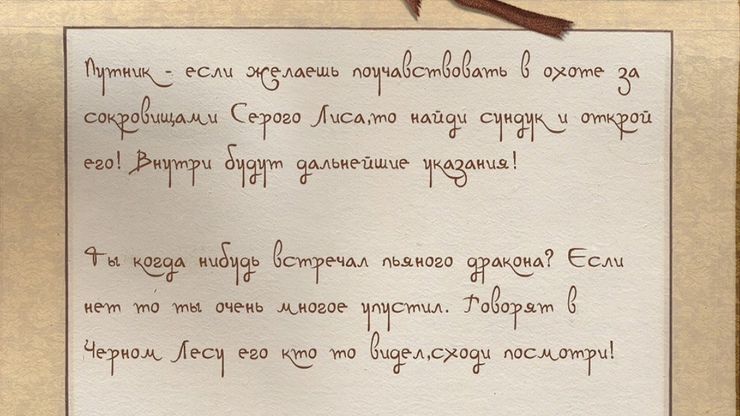 Путник - если желаешь поучавствовать в охоте за
сокровищами Серого Лиса,то найди сундук и открой
его! Внутри будут дальнейшие указания!
Ты когда нибудь встречал пьяного дракона? Если
нет то ты очень многое упустил. Говорят в
Черном Лесу его кто то видел,сходи посмотри!